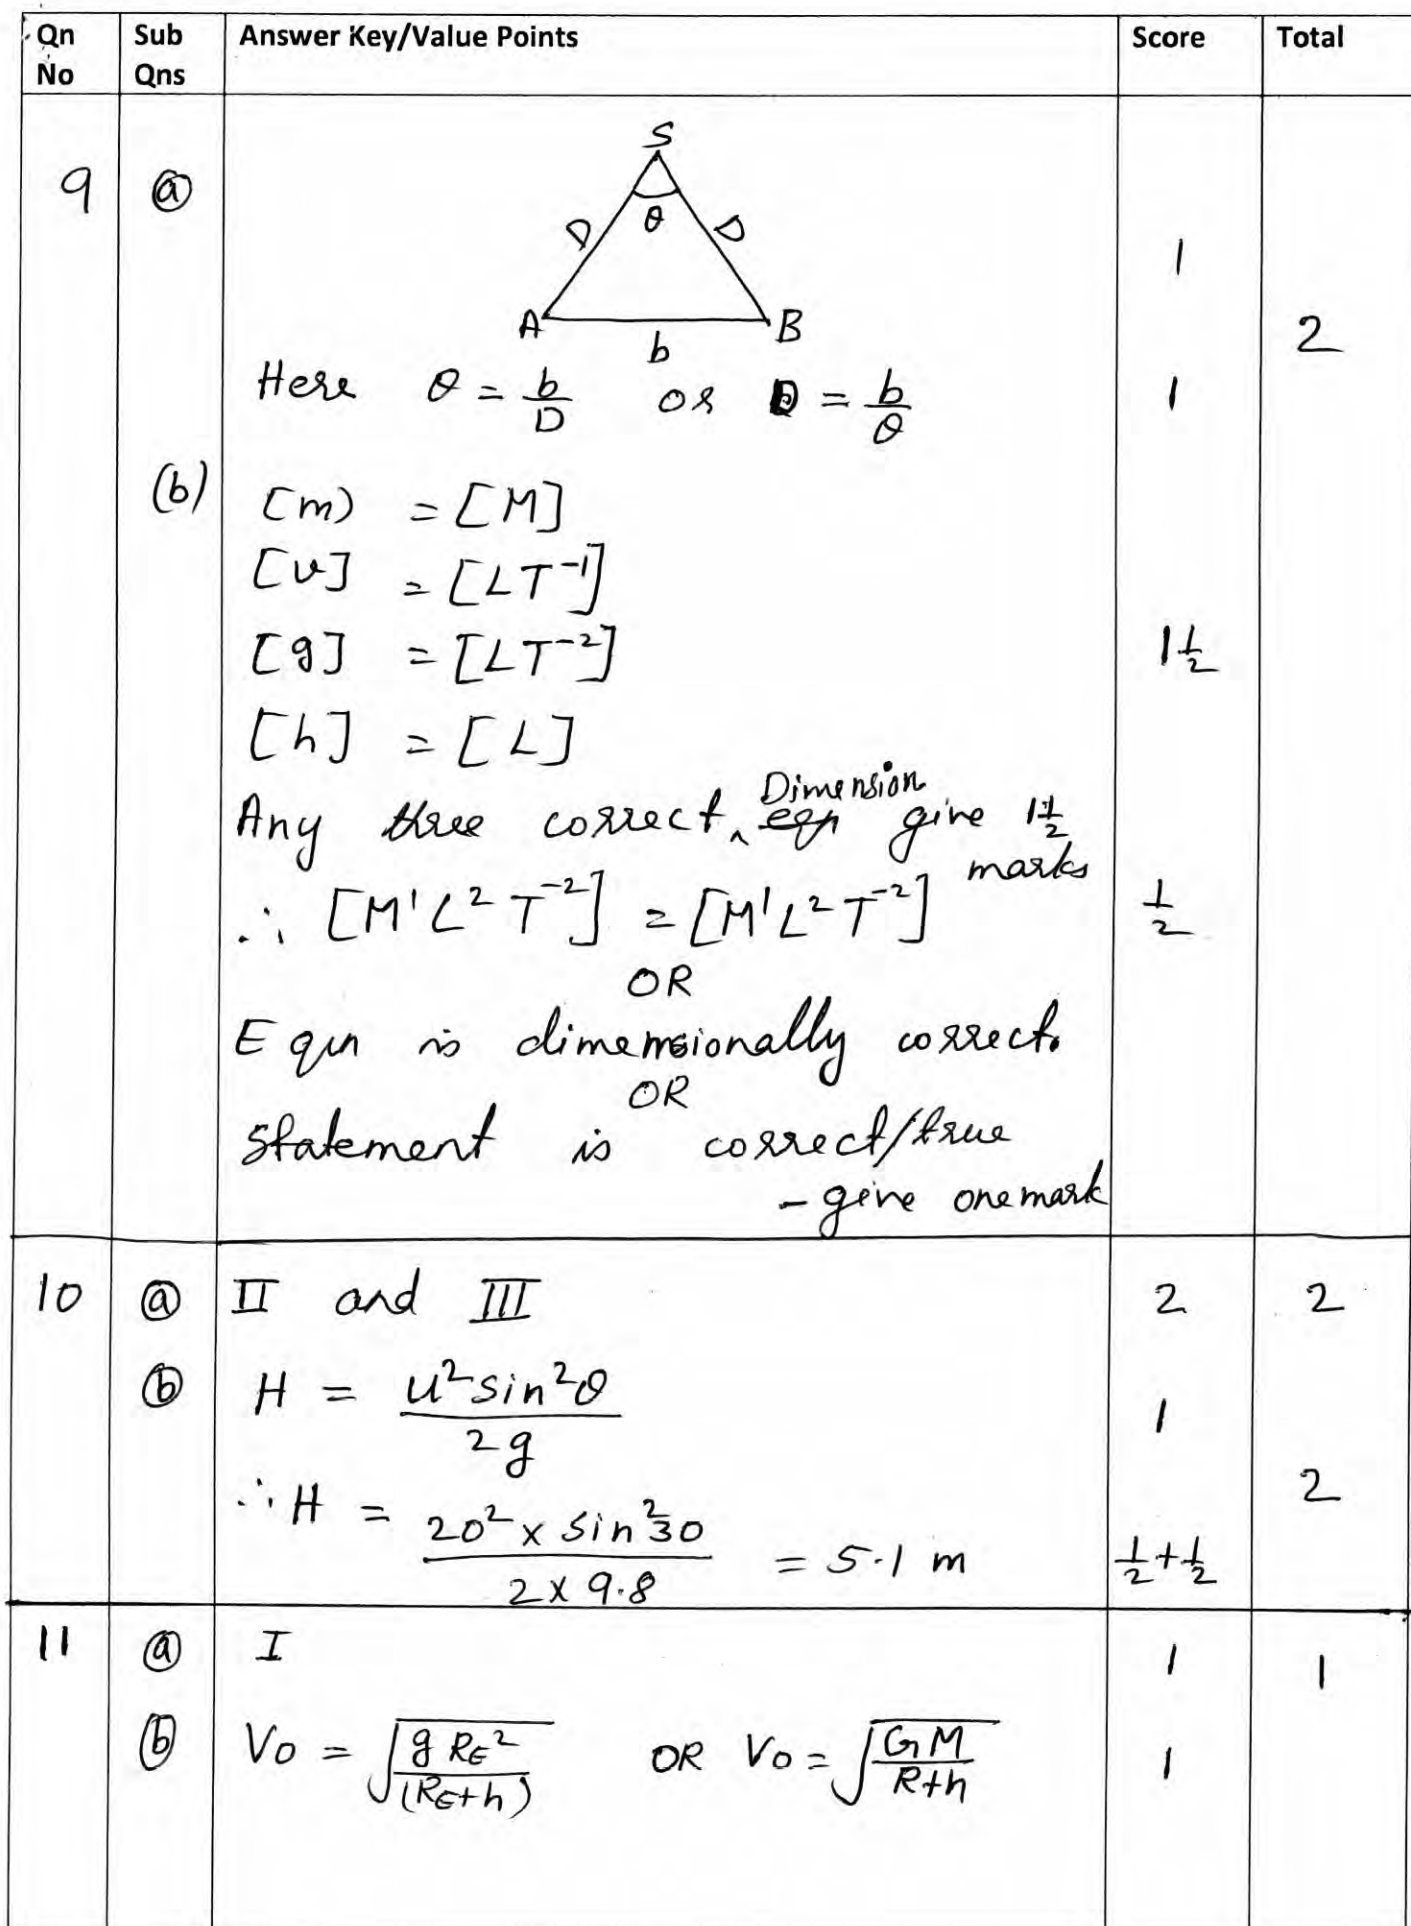 Qn No Sub Qns Answer Key/Value Points Score Total
9 ⓐ
S
D θ D
1
A B
b
2
Here θ = b/D or D = b/θ 1
(b) [m) = [M]
[v] = [LT⁻¹]
[g] = [LT⁻²] 1½
[h] = [L]
Any three correct ‸ Dimension eqn give 1½ marks
∴ [M¹L²T⁻²] = [M¹L²T⁻²] ½
OR
Eqn is dimensionally correct.
OR
Statement is correct/true
- give one mark
10 ⓐ II and III 2 2
ⓑ H = u²sin²θ/2g 1
2
∴ H = 20² x sin²30/2 x 9.8 = 5.1 m ½+½
11 ⓐ I 1 1
ⓑ Vo = √(g RE²/(RE+h)) OR Vo = √(GM/R+h) 1